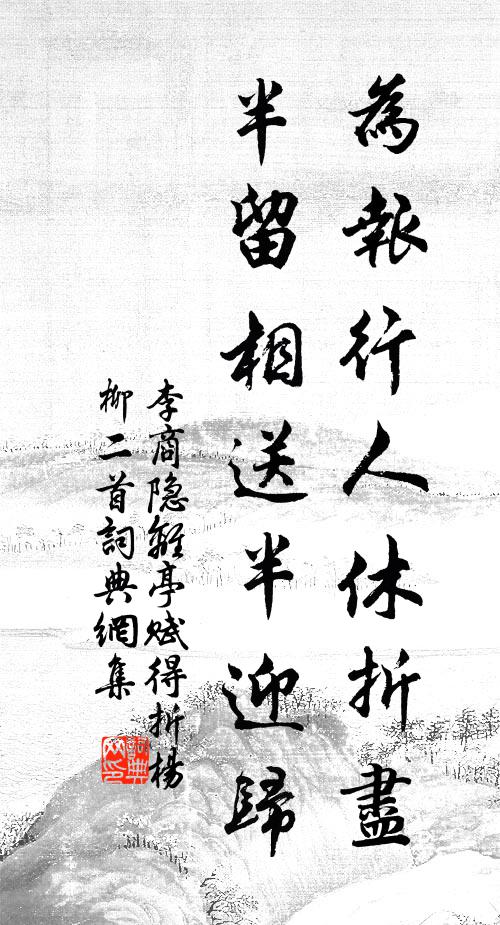 為報行人休折盡
半留相送半迎歸
李商隐離亭賦得折楊
柳二首詞典網集